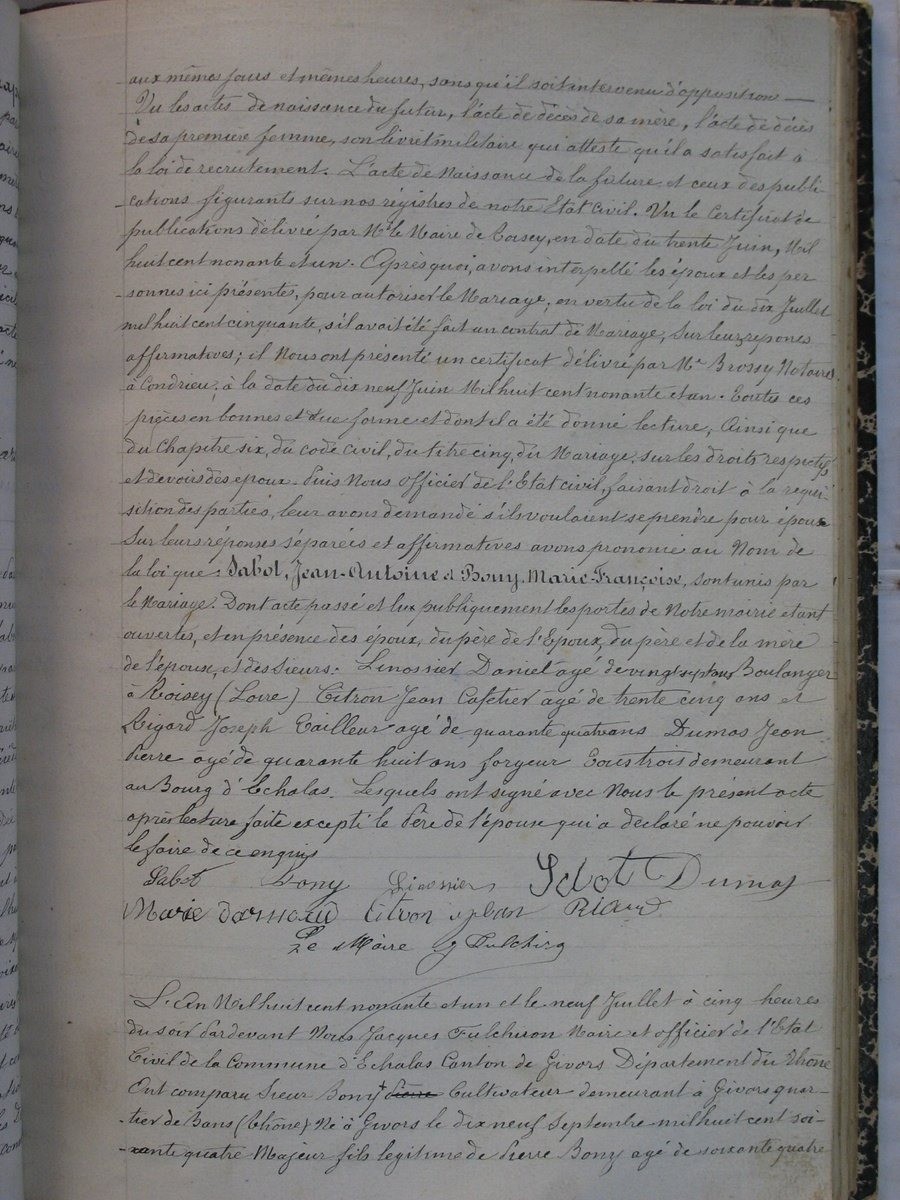 aux mêmes jours et mêmes heures, sans qu'il soit intervenu d'opposition —
Vu les actes de naissance du futur, l'acte de décès de sa mère, l'acte de décès
de sa première femme, son livret militaire qui atteste qu'il a satisfait à
la loi de recrutement. L'acte de Naissance de la future et ceux des publi-
cations figurants sur nos régistres de notre Etat Civil. Vu le Certificat de
publications délivré par Mr le Maire de Roisey, en date du trente Juin, Mil
huit cent nonante et un. Après quoi, avons interpellé les époux et les per
sonnes ici présentes, pour autoriser le Mariage, en vertu de la loi du dix Juillet
mil huit cent cinquante, s'il avait été fait un contrat de Mariage, Sur leurs repones
affirmatives; il Nous ont présenté un certificat délivré par Me Brossy Notaire
à Condrieu, à la date du dix neuf Juin Mil huit cent nonante et un. Toutes ces
pièces en bonnes et due forme et dont il a été donné lecture, Ainsi que
du Chapitre six, du code Civil, du titre cinq, du Mariage, sur les droits respectifs
et devoirs des epoux. Puis Nous officier de l'Etat civil, faisant droit à la requi-
sition des parties, leur avons demandé s'ils voulaient se prendre pour époux
Sur leurs réponses séparéis et affirmatives avons prononcé au Nom de
la loi que: Sabot, Jean-Antoine et Bony, Marie-Françoise, sont unis par
le Mariage. Dont acte passé et lux publiquement les portes de Notre mairie etant
ouvertes, et en présence des époux, du père de l'Epoux, du père et de la mère
de l'épouse, et des Sieurs. Linossier Daniel agé de vingt sept ans Boulanger
à Roisey (Loire) Citron Jean Cafetier agé de trente cinq ans et
Rigard Joseph Tailleur agé de quarante quatre ans Dumas Jean
Pierre agé de quarante huit ans forgeur Tous trois demeurant
au Bourg d'Echalas. Lesquels ont signé avec Nous le présent acte
après lecture faite excepti le Père de l'épouse qui a déclaré ne pouvoir
le faire de ce enquis
Sabot Bony Linossier Sabot Dumas
Marie Citron
Le Maire Fulchiron
L'An Mil huit cent nonante et un et le neuf Juillet à cinq heures
du soir Pardevant Nous Jacques Fulchiron Maire et officier de l'Etat
Civil de la Commune d'Echalas Canton de Givors Département du Rhône
Ont comparu Sieur Bony Pierre Cultivateur demeurant à Givors quar-
tier de Bans (Rhône) Né à Givors le dix neuf Septembre mil huit cent soi-
xante quatre Majeur fils legitime de Pierre Bony agé de soixante quatre